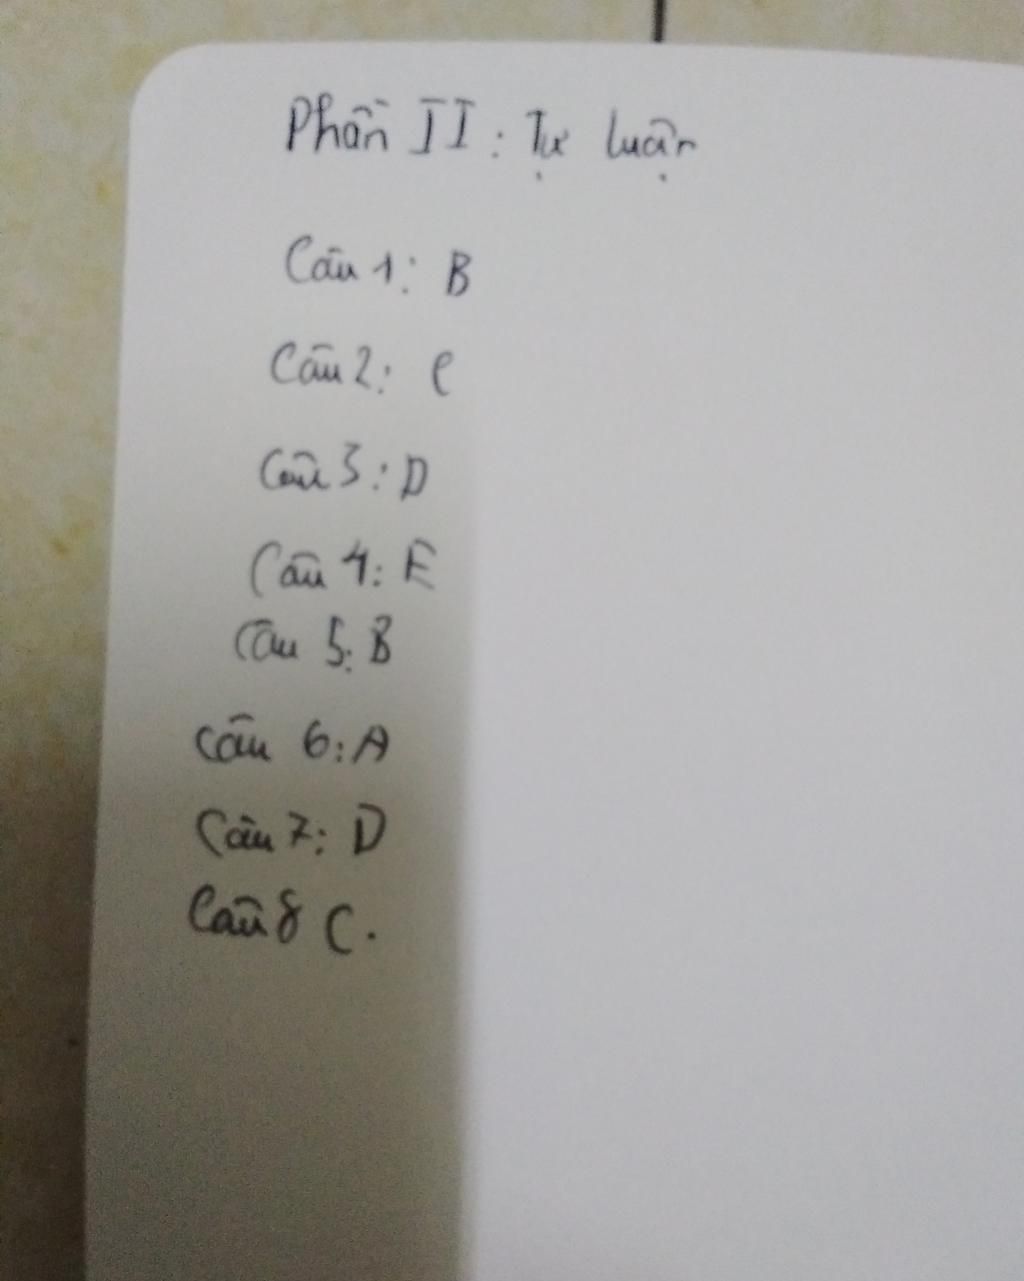 Phần II: Tự luận
Câu 1: B
Câu 2: C
Câu 3: D
Câu 4: E
Câu 5: B
Câu 6: A
Câu 7: D
Câu 8 C.